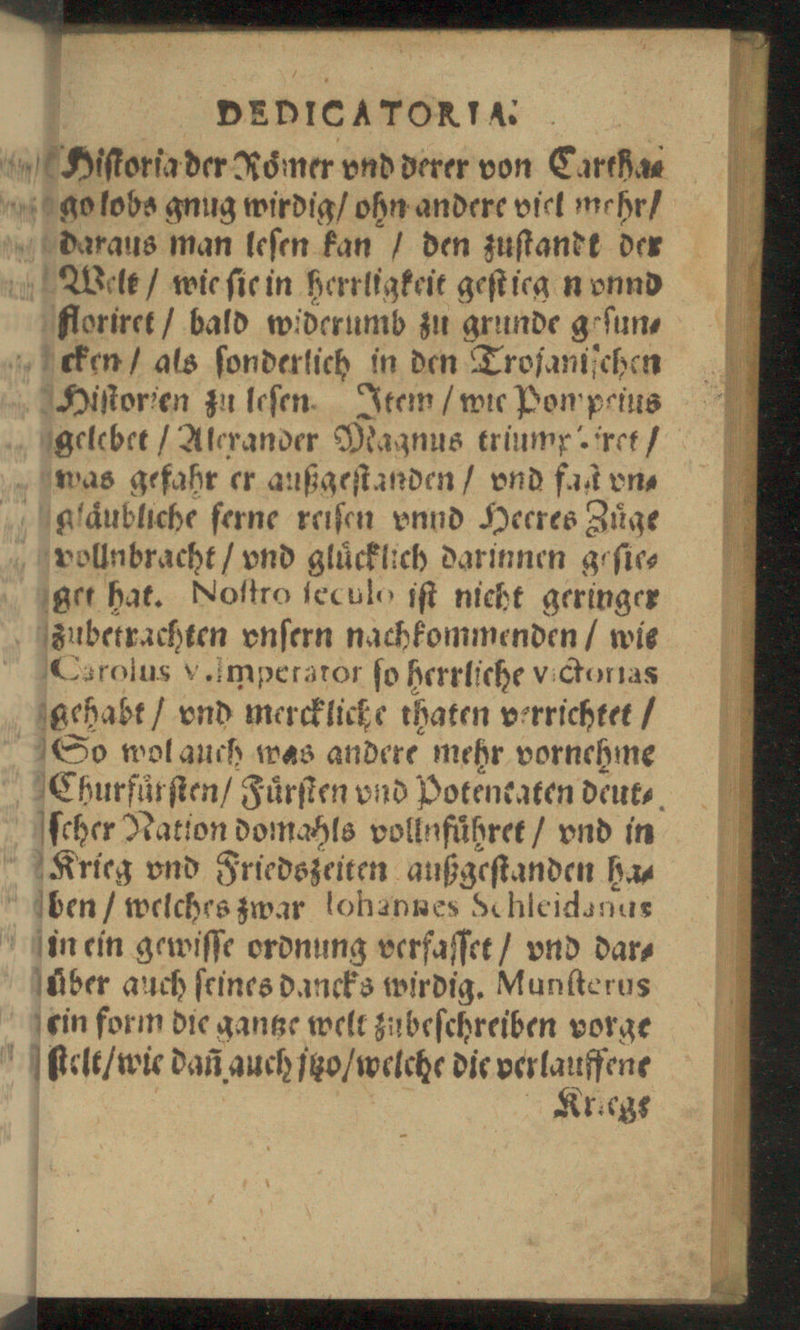 DEDICATORIA.
Hiſtoria der Römer vnd derer von Cartha⸗
go lobs gnug wirdig/ ohn andere viel mehr/
daraus man leſen kan / den zuſtandt der
Welt / wie ſie in herrligkeit geſtiegen vnnd
floriret / bald widerumb zu grunde geſun⸗
cken / als ſonderlich in den Trojaniſchen
Hiſtorien zu leſen. Item / wie Pompeius
gelebet / Alexander Magnus triumphiret /
was gefahr er außgeſtanden / vnd faſt vn⸗
gläubliche ferne reiſen vnnd Heeres Züge
vollnbracht / vnd glücklich darinnen geſie⸗
get hat. Noſtro ſeculo iſt nicht geringer
zubetrachten vnſern nachkommenden / wie
Carolus v. Imperator ſo herrliche victorias
gehabt / vnd merckliche thaten verrichtet /
So wol auch was andere mehr vornehme
Churfürſten/ Fürſten vnd Potentaten deut⸗
ſcher Nation domahls vollnführet / vnd in
Krieg vnd Friedszeiten außgeſtanden ha⸗
ben / welches zwar Iohannes Schleidanus
in ein gewiſſe ordnung verfaſſet / vnd dar⸗
über auch ſeines dancks wirdig. Munſterus
ein form die gantze welt zubeſchreiben vorge
ſtelt/ wie dañ auch jtzo/ welche die verlauffene
Kriegs